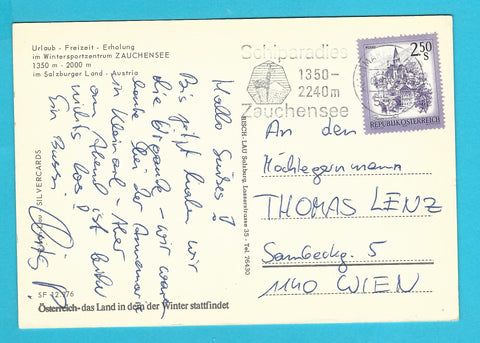 Urlaub - Freizeit - Erholung
im Wintersportzentrum ZAUCHENSEE
1350 m - 2000 m
im Salzburger Land - Austria
Schiparadies
1350-
2240m
Zauchensee
2.50
S
REPUBLIK ÖSTERREICH
Hallo Süßes!
Bis jetzt haben wir
die Urgaude - wir waren
heute bei der Annemarie
in Kleinarl - Aber
am Abend ist leider
nichts los!
Ein Bussi
An den
Möchtegernmann
THOMAS LENZ
5
1140 WIEN
SILVERCARDS
RISCH-LAU Salzburg, 35 - Tel. 76430
SF 12.776
Österreich - das Land in dem der Winter stattfindet